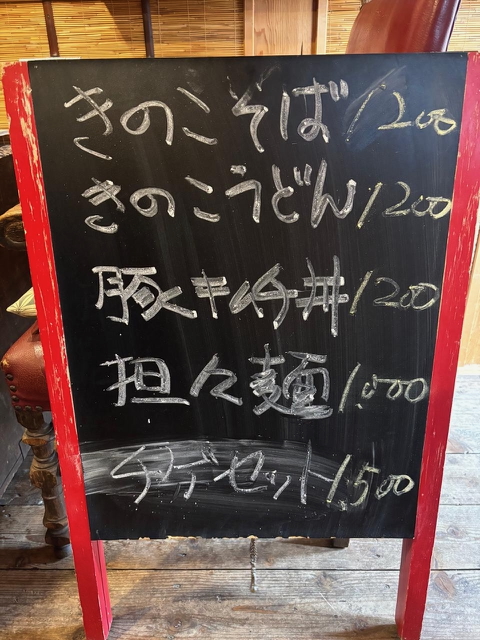 きのこそば 1200
きのこうどん 1200
豚キムチ丼 1200
担々麺 1,000
チゲセット 1,500